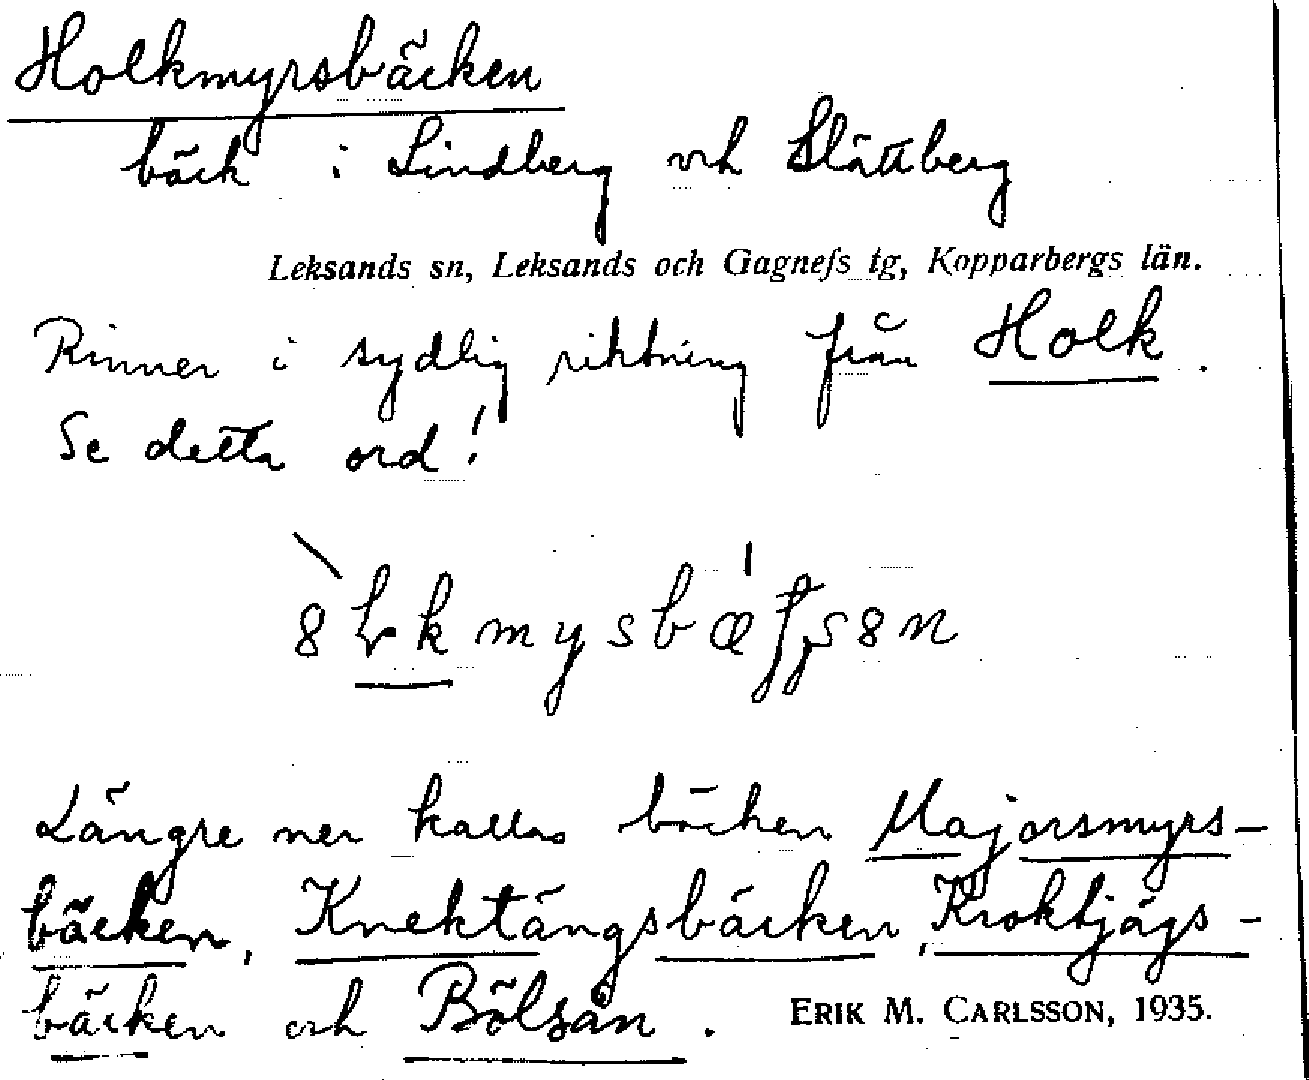 Holkmyrsbäcken
bäck i Lindberg och Slättberg
Leksands sn, Leksands och Gagnefs tg, Kopparbergs län.
Rinner i sydlig riktning från Holk.
Se detta ord!
Längre ner kallas bäcken Majorsmyrs-
bäcken, Knektängsbäcken, Kroktjägs-
bäcken och Bölsån.
ERIK M. CARLSSON, 1935.